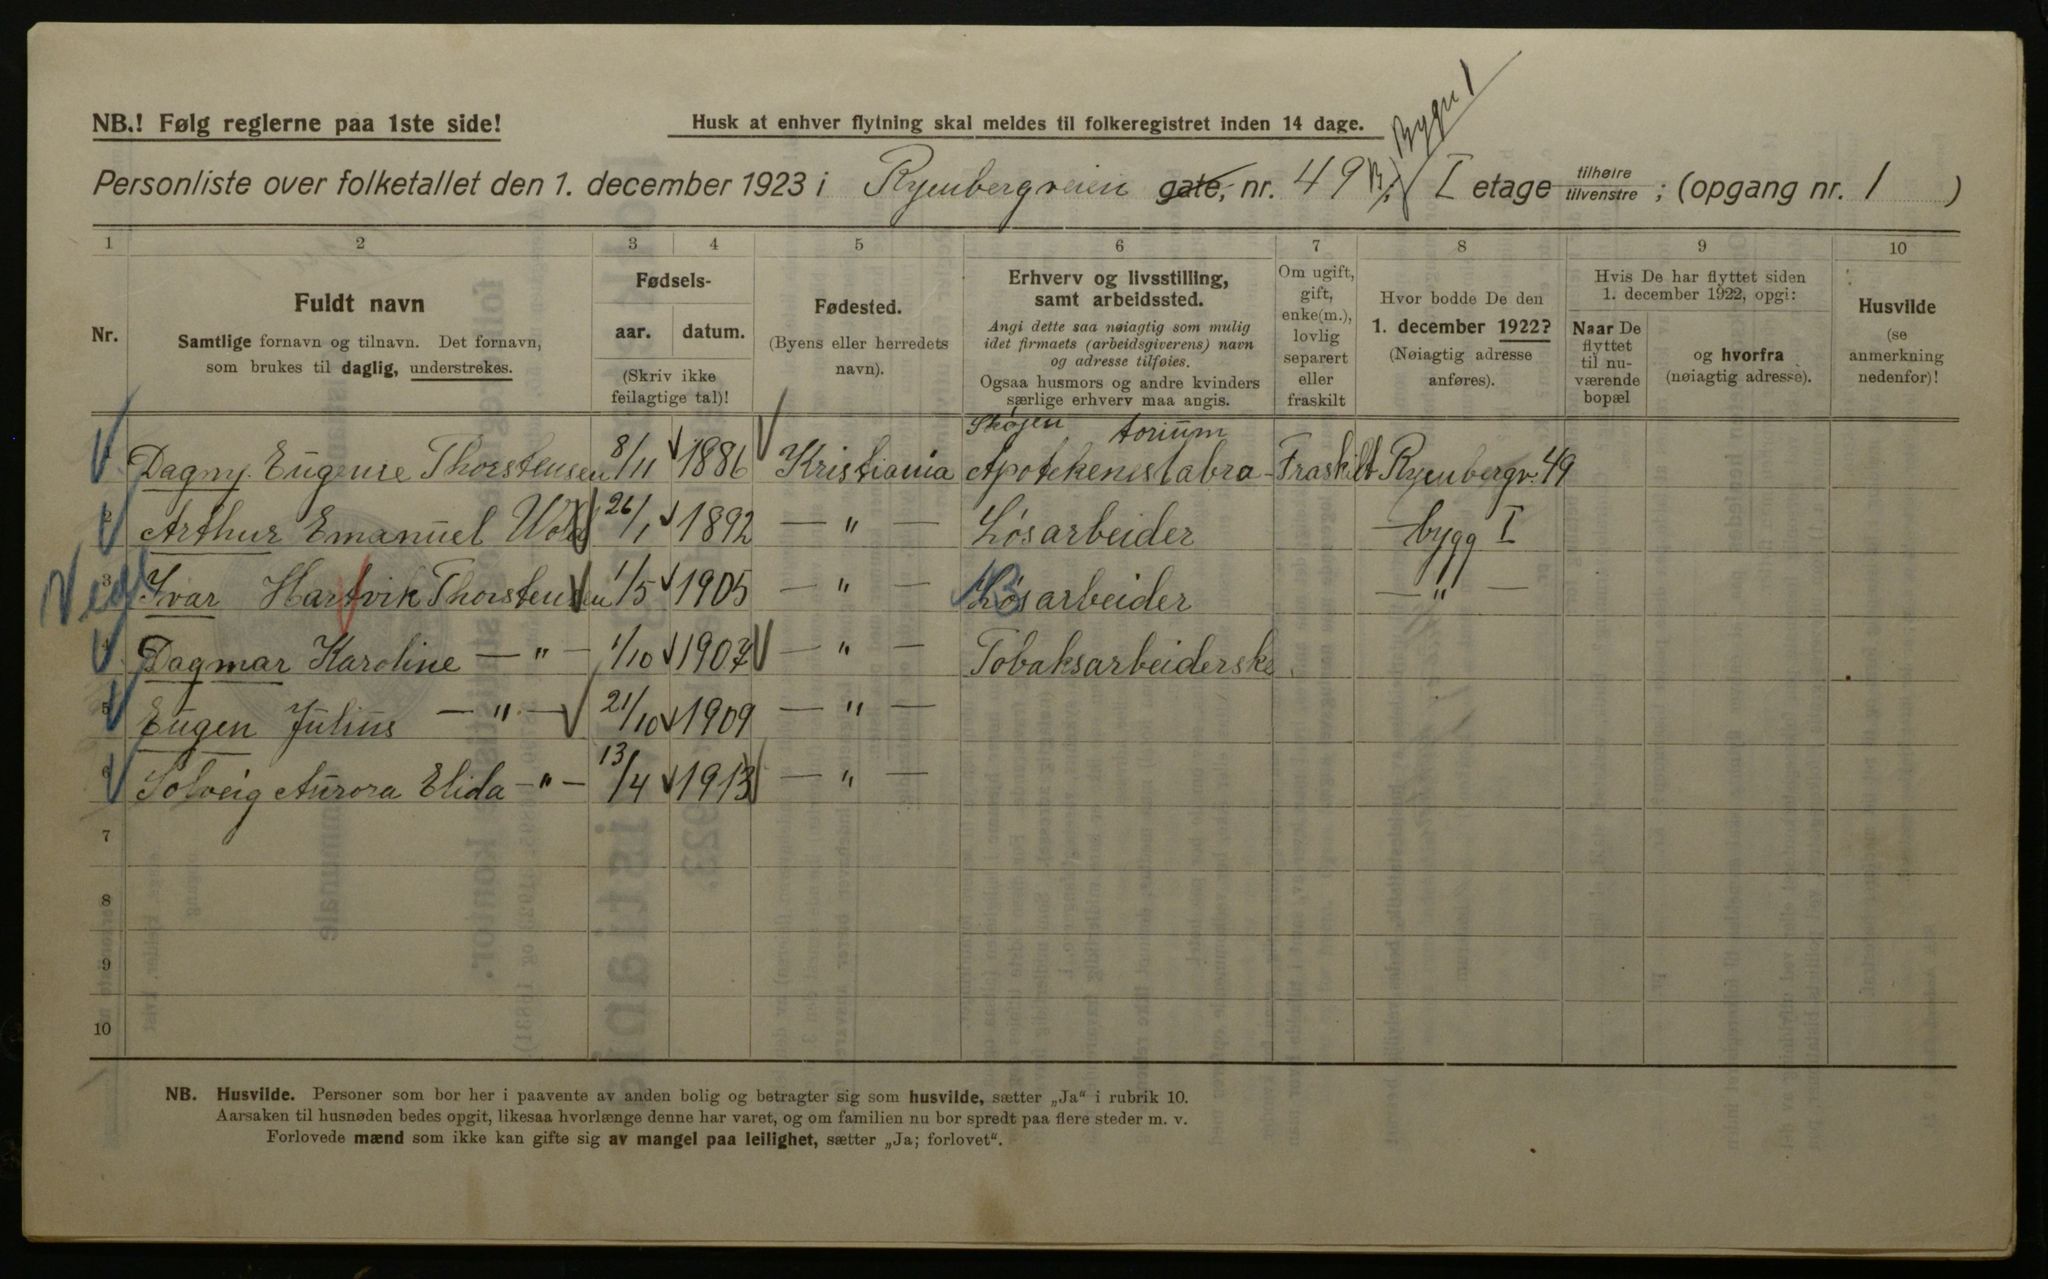 NB.! Følg reglerne paa 1ste side!
Husk at enhver flytning skal meldes til folkeregistret inden 14 dage.
Bygn 1
Personliste over folketallet den 1. december 1923 i Ryenbergveien gate, nr. 49 B I etage tilhøire tilvenstre ; (opgang nr. 1 )
1 2 3 4 5 6 7 8 9 10
Nr.
Fuldt navn
Samtlige fornavn og tilnavn. Det fornavn,
som brukes til daglig, understrekes.
Fødsels-
aar. datum.
(Skriv ikke
feilagtige tal)!
Fødested.
(Byens eller herredets
navn).
Erhverv og livsstilling,
samt arbeidssted.
Angi dette saa nøiagtig som mulig
idet firmaets (arbeidsgiverens) navn
og adresse tilføies.
Ogsaa husmors og andre kvinders
særlige erhverv maa angis.
Om ugift,
gift,
enke(m.),
lovlig
separert
eller
fraskilt
Hvor bodde De den
1. december 1922?
(Nøiagtig adresse
anføres).
Hvis De har flyttet siden
1. december 1922, opgi:
Naar De
flyttet
til nu-
værende
bopæl
og hvorfra
(nøiagtig adresse).
Husvilde
(se
anmerkning
nedenfor)!
Skøjen torium
Dagny Eugenie Thorstensen 8/11 1886 Kristiania Apotekeneslabra- Fraskilt Ryenbergv. 49
2 Arthur Emanuel Wold 26/1 1892 — " — Løsarbeider bygg I
3 Ivar Hartvik Thorstensen 1/5 1905 — " — Løsarbeider — " —
4 Dagmar Karoline — " — 1/10 1907 — " — Tobaksarbeiderske
5 Eugen Julius — " — 21/10 1909 — " —
6 Solveig Aurora Elida — " — 13/4 1913 — " —
7
8
9
10
NB. Husvilde. Personer som bor her i paavente av anden bolig og betragter sig som husvilde, sætter „Ja“ i rubrik 10.
Aarsaken til husnøden bedes opgit, likesaa hvorlænge denne har varet, og om familien nu bor spredt paa flere steder m. v.
Forlovede mænd som ikke kan gifte sig av mangel paa leilighet, sætter „Ja; forlovet“.